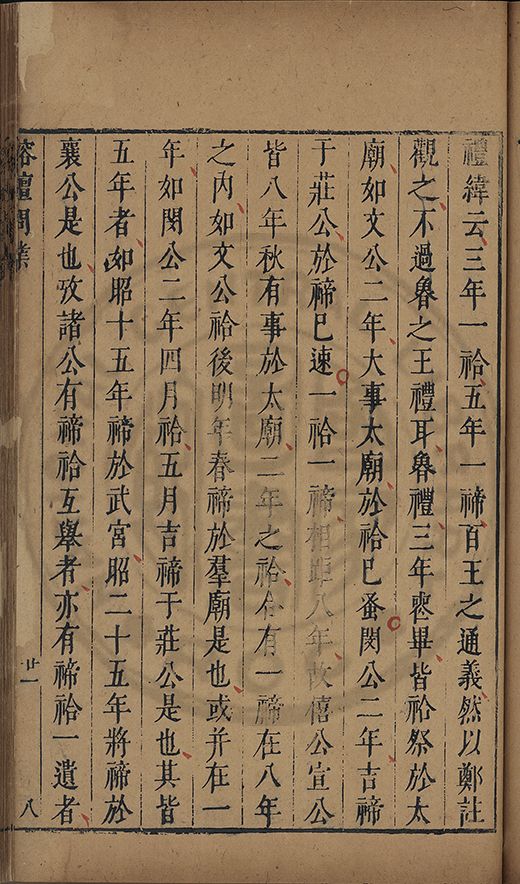 禮緯云三年一祫五年一禘百王之通義然以鄭註
觀之不過魯之王禮耳魯禮三年喪畢皆祫祭於太
廟如文公二年大事太廟於祫已蚤閔公二年吉禘
于莊公於禘已速一祫一禘相距八年故僖公宣公
皆八年秋有事於太廟二年之祫合有一禘在八年
之內如文公祫後明年春禘於羣廟是也或并在一
年如閔公二年四月祫五月吉禘于莊公是也其皆
五年者如昭十五年禘於武宮昭二十五年將禘於
襄公是也攷諸公有禘祫互舉者亦有禘祫一遺者
榕壇問業
廿一
八